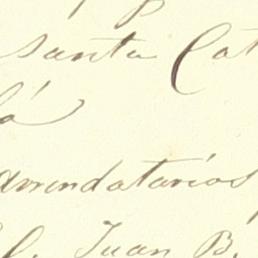 Santa Cat
arrendatarios
Juan B.